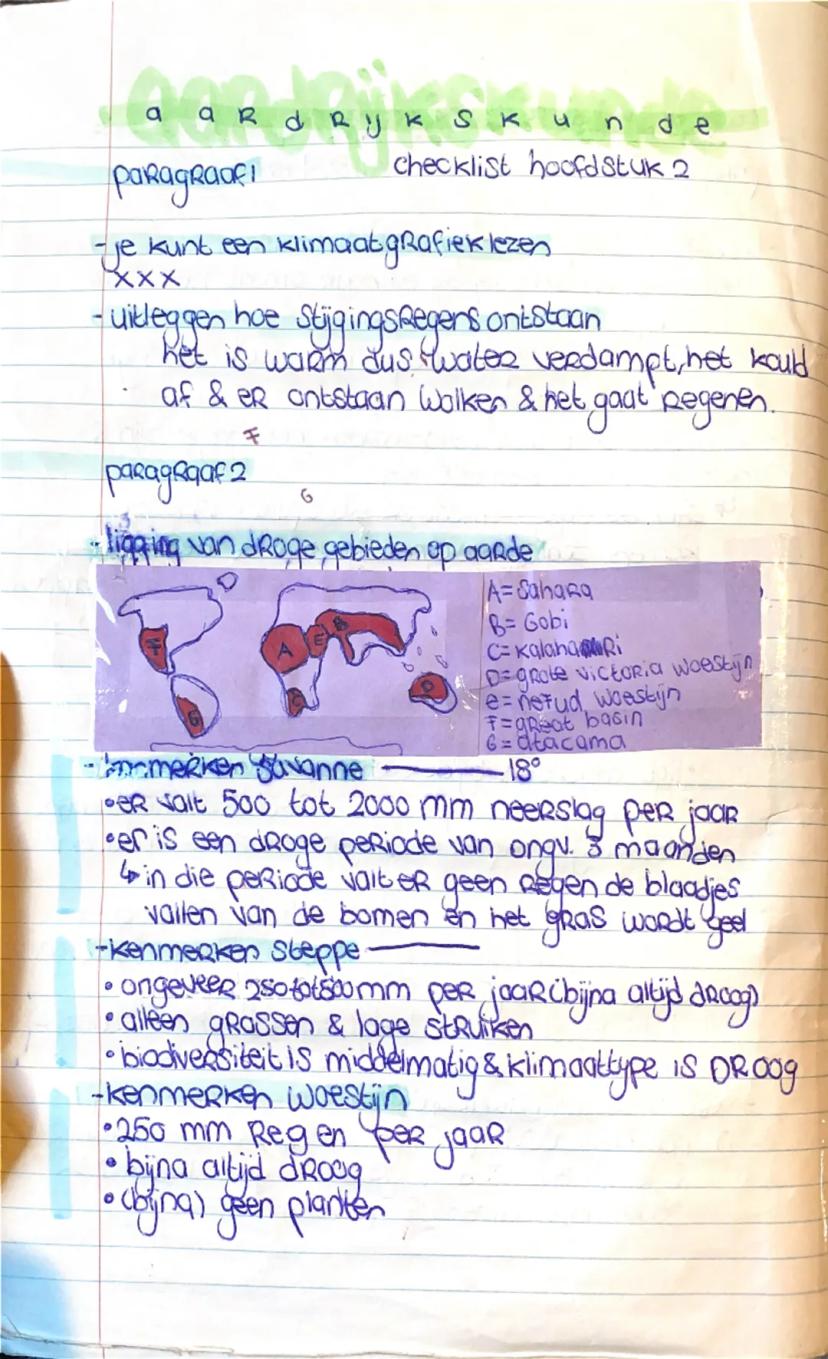 aardrijkskunde
a a R d R ij k s k u n d e
paragraaf 1
checklist hoofdstuk 2
- je kunt een klimaatgrafiek lezen
xxx
- uitleggen hoe stijgingsregens ontstaan
het is warm dus water verdampt, het kould
af & er ontstaan wolken & het gaat regenen.
F
paragraaf 2
G
- ligging van droge gebieden op aarde
F A E B
G C D
A = Sahara
B = Gobi
C = kalahari
D = grote victoria woestijn
e = nefud woestijn
F = great basin
G = atacama
- kenmerken Savanne — 18°
• er valt 500 tot 2000 mm neerslag per jaar
• er is een droge periode van ongv. 3 maanden
↳ in die periode valt er geen regen de blaadjes
vallen van de bomen en het gras wordt geel
- kenmerken steppe —
• ongeveer 250 tot 500 mm per jaar (bijna altijd droog)
• alleen grassen & lage struiken
• biodiversiteit is middelmatig & klimaattype is DROOG
- kenmerken woestijn
• 250 mm Regen per jaar
• bijna altijd droog
• (bijna) geen planten